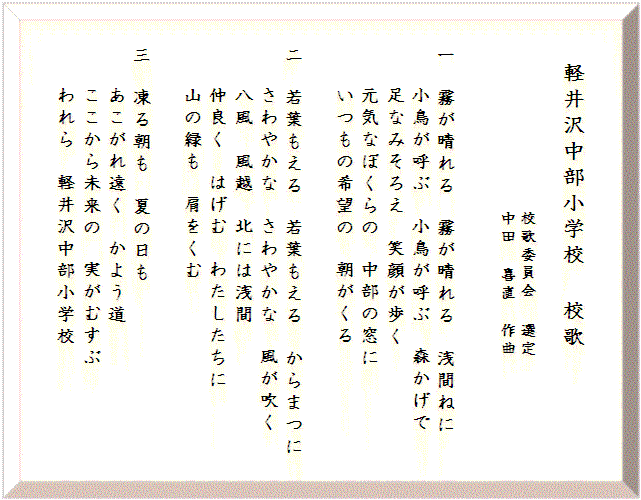 軽井沢中部小学校　校歌
校歌委員会　選定
中田　喜直　作曲
一　霧が晴れる　霧が晴れる　浅間ねに
小鳥が呼ぶ　小鳥が呼ぶ　森かげで
足なみそろえ　笑顔が歩く
元気なぼくらの　中部の窓に
いつもの希望の　朝がくる
二　若葉もえる　若葉もえる　からまつに
さわやかな　さわやかな　風が吹く
八風　風越　北には浅間
仲良く　はげむ　わたしたちに
山の緑も　肩をくむ
三　凍る朝も　夏の日も
あこがれ遠く　かよう道
ここから未来の　実がむすぶ
われら　軽井沢中部小学校